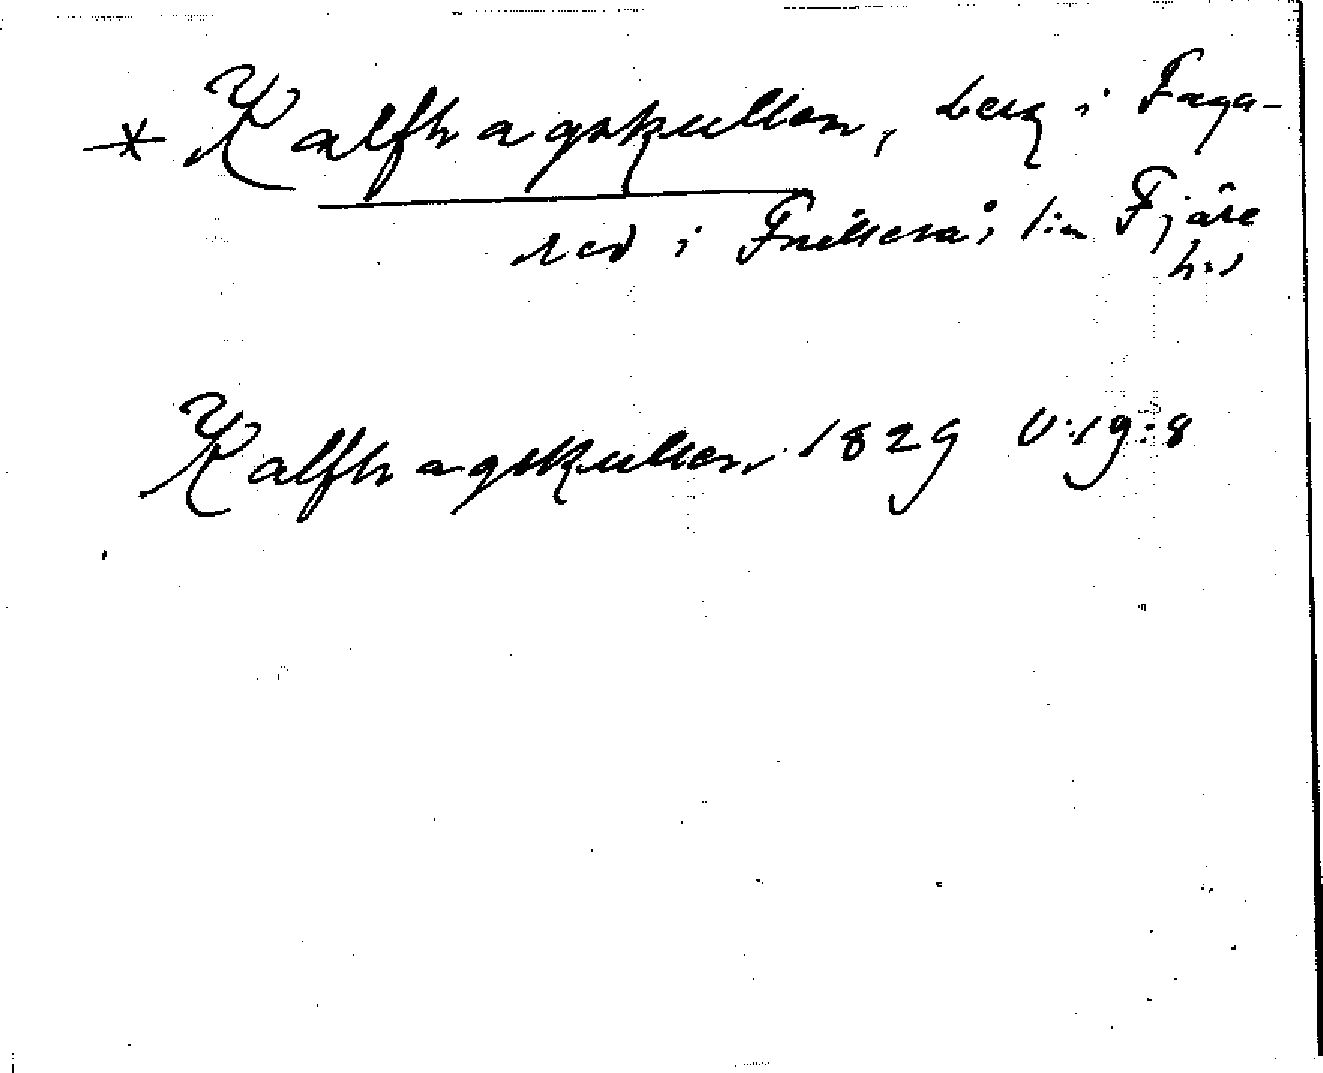 * Kalfhagskullen, berg i Faga-
red i Frillesås s:n Fjäre
h:d
Kalfhagskullen 1829 V:19:8